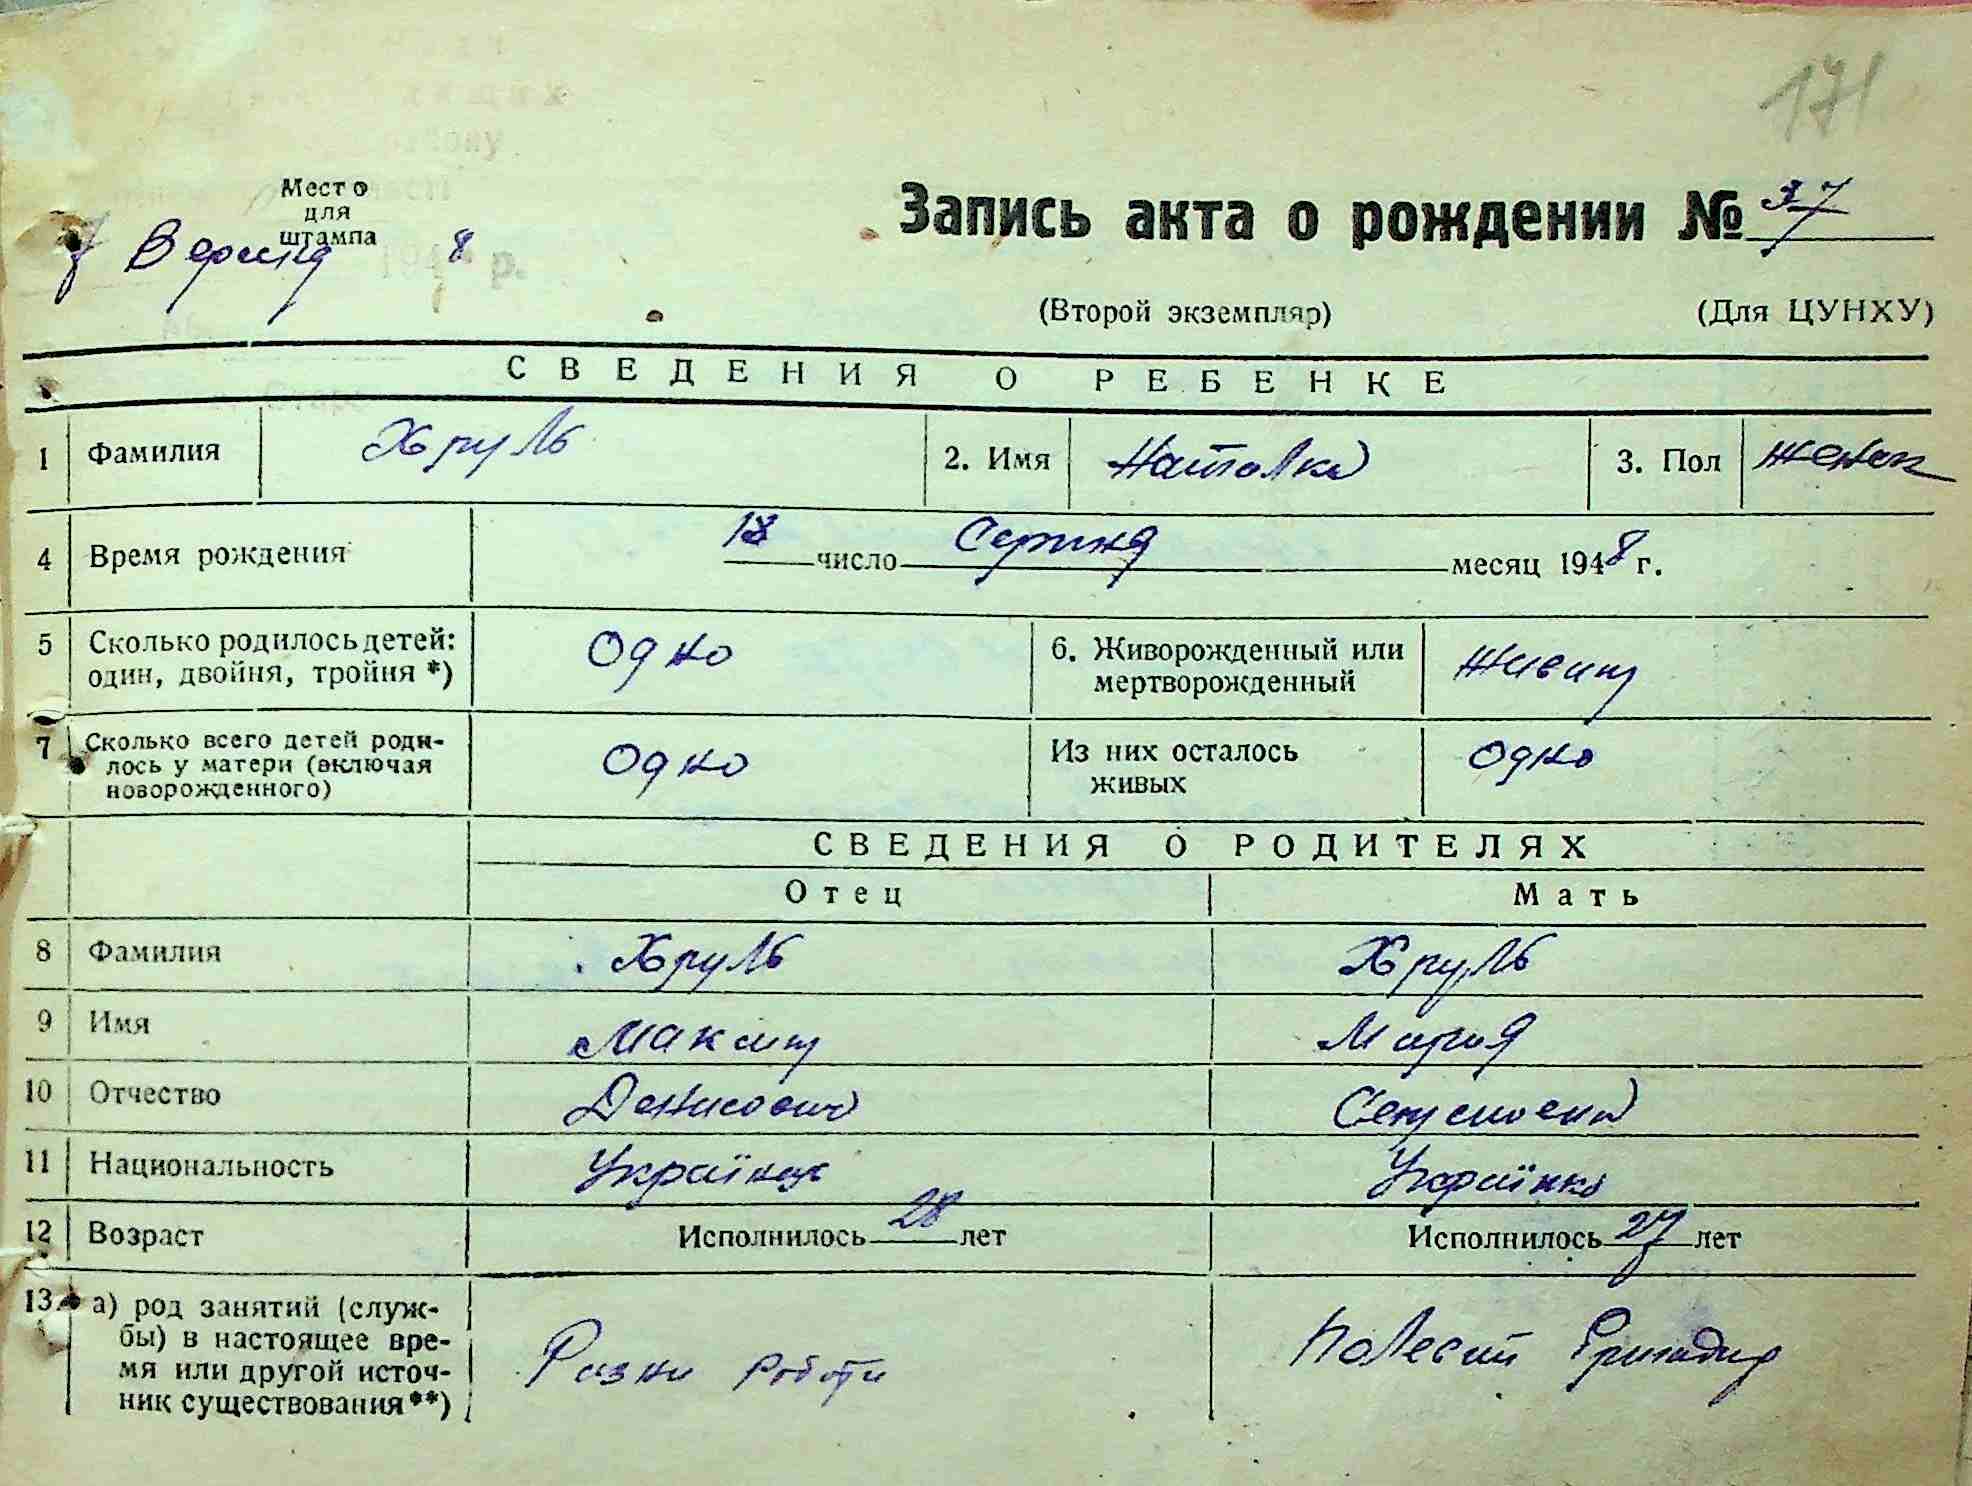 171
Место
для
штампа
7 Вересня 1948 р.
Запись акта о рождении № 37
(Второй экземпляр) (Для ЦУНХУ)
СВЕДЕНИЯ О РЕБЕНКЕ
1 Фамилия Хруль 2. Имя Наталка 3. Пол женск
4 Время рождения 18 число Серпня месяц 1948 г.
5 Сколько родилось детей: один, двойня, тройня *) Одно 6. Живорожденный или мертворожденный Живим
7 Сколько всего детей роди-
лось у матери (включая
новорожденного) Одно Из них осталось живых Одно
СВЕДЕНИЯ О РОДИТЕЛЯХ
Отец Мать
8 Фамилия Хруль Хруль
9 Имя Максим Марія
10 Отчество Денисович
11 Национальность Українець Українка
12 Возраст Исполнилось 28 лет Исполнилось 27 лет
13. а) род занятий (служ-
бы) в настоящее вре-
мя или другой источ-
ник существования **) Разни роботи Полевий бригадир